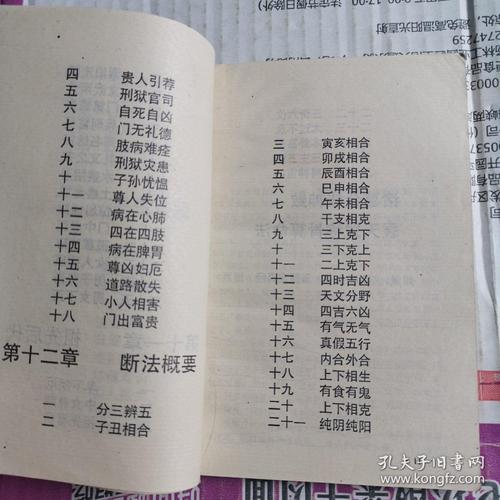 四 贵人引荐
五 刑狱官司
六 自死自凶
七 门无礼德
八 肢病难痊
九 刑狱灾患
十 子孙忧愠
十一 尊人失位
十二 病在心肺
十三 四在四肢
十四 病在脾胃
十五 尊凶妇厄
十六 道路散失
十七 小人相害
十八 门出富贵
第十二章 断法概要
一 分三辨五
二 子丑相合
三 寅亥相合
四 卯戌相合
五 辰酉相合
六 巳申相合
七 午未相合
八 干支相克
九 三上克下
十 三下克上
十一 二上克下
十二 四时吉凶
十三 天文分野
十四 四吉六凶
十五 有气无气
十六 真假五行
十七 内合外合
十八 上下相生
十九 有食有鬼
二十 上下相克
二十一 纯阴纯阳
避免高温阳光直射
2747259
孔夫子旧书网
www.kongfz.com